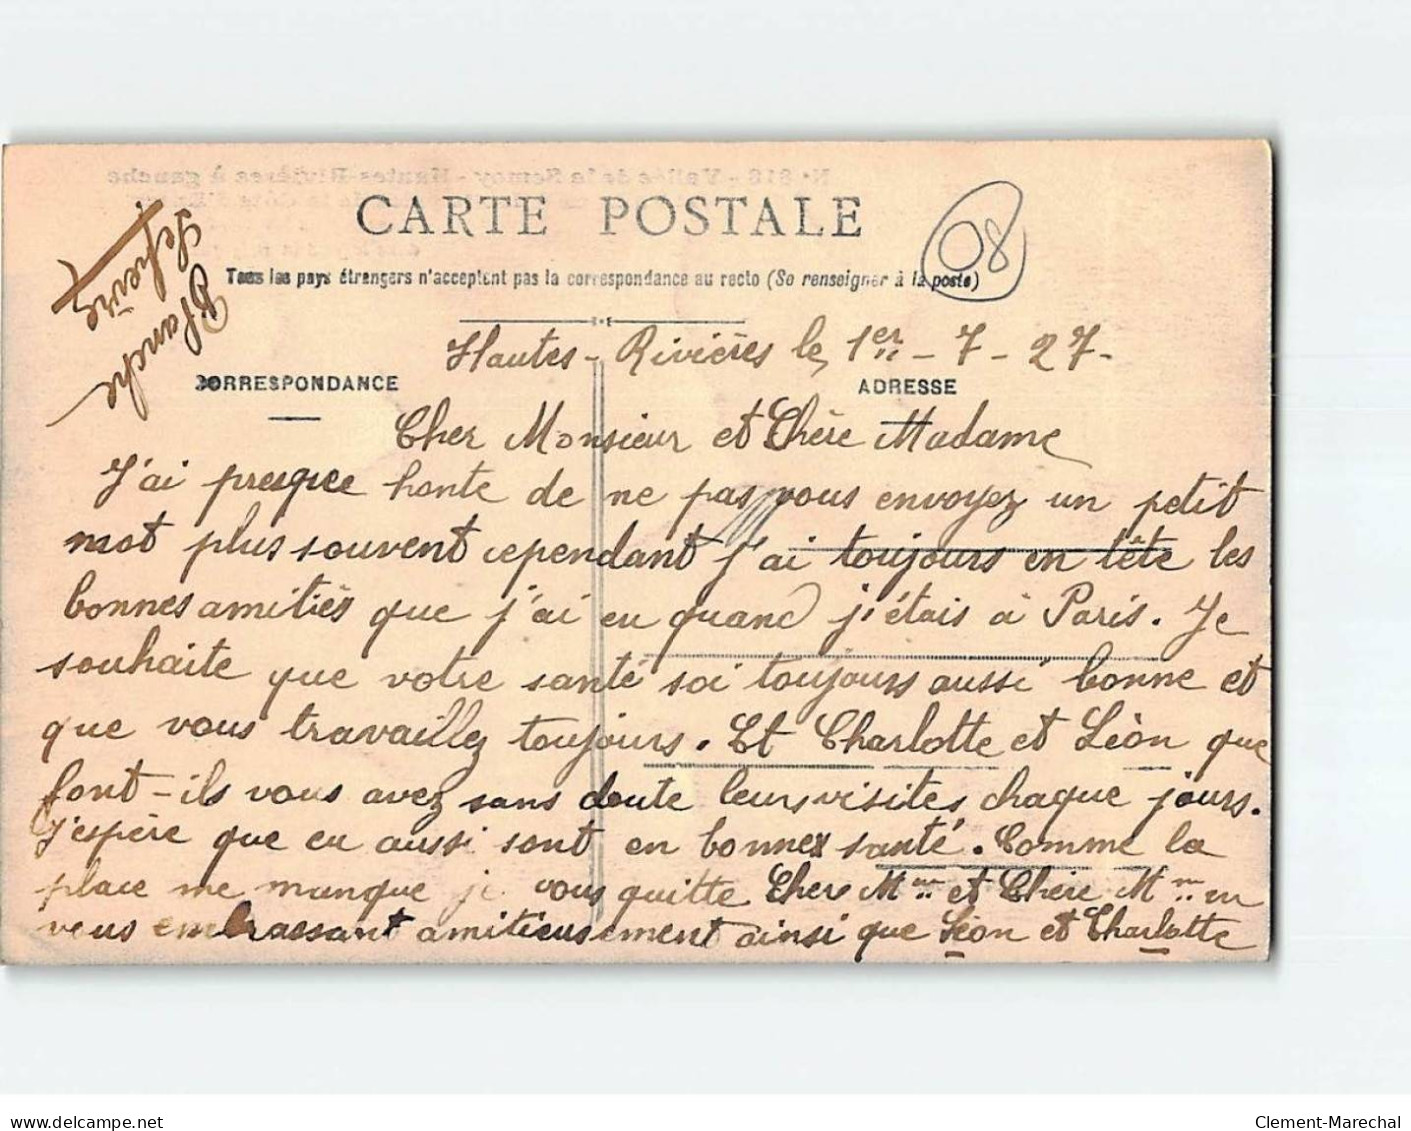 CARTE POSTALE
08
Tous les pays étrangers n'acceptent pas la correspondance au recto (Se renseigner à la poste)
CORRESPONDANCE
ADRESSE
Blanche
Hautes-Rivières le, 1er - 7 - 27 -
Cher Monsieur et Chère Madame
J'ai presque honte de ne pas vous envoyez un petit
mot plus souvent cependant j'ai toujours en tête les
bonnes amitiés que j'ai eu quand j'étais à Paris. Je
souhaite que votre santé soi toujours aussi bonne et
que vous travaillez toujours. Et Charlotte et Lèon que
font-ils vous avez sans doute leurs visites chaque jours.
J'espère que eu aussi sont en bonnes santé. Comme la
place me manque je vous quitte Cher Mr et Chère Mme en
vous embrassant amitieusement ainsi que Léon et Charlotte
delcampe.net
Clement-Marechal